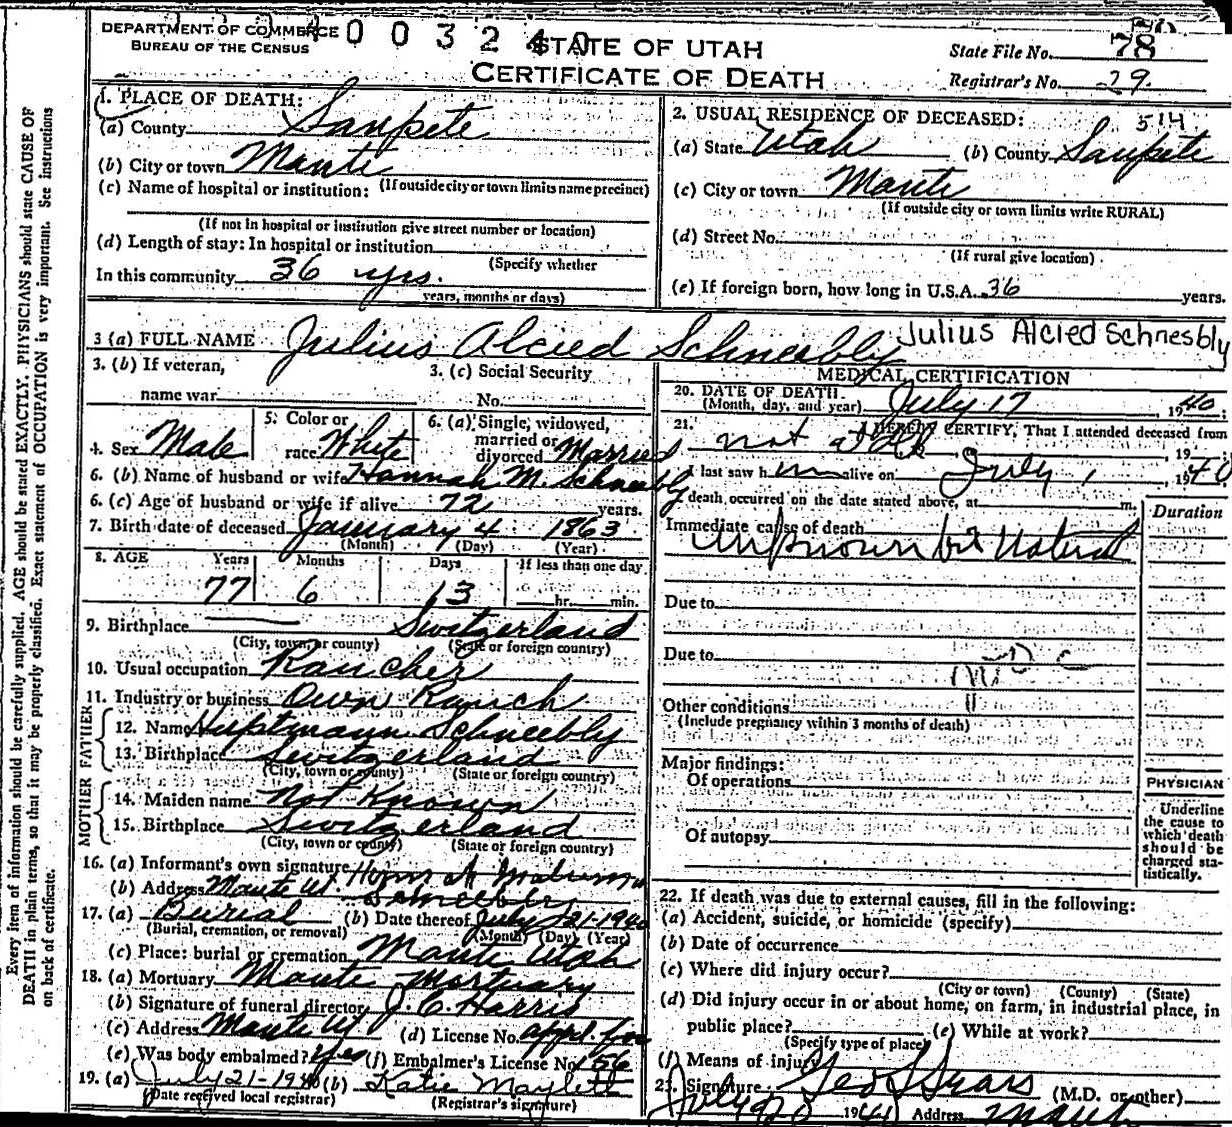 DEPARTMENT OF COMMERCE
BUREAU OF THE CENSUS
0 0 3 2 4 0
STATE OF UTAH
CERTIFICATE OF DEATH
State File No. 78
Registrar's No. 29
Every item of information should be carefully supplied. AGE should be stated EXACTLY. PHYSICIANS should state CAUSE OF
DEATH in plain terms, so that it may be properly classified. Exact statement of OCCUPATION is very important. See instructions
on back of certificate.
1. PLACE OF DEATH:
(a) County Sanpete
(b) City or town Manti
(If outside city or town limits name precinct)
(c) Name of hospital or institution:
(If not in hospital or institution give street number or location)
(d) Length of stay: In hospital or institution
(Specify whether
In this community 36 yrs.
years, months or days)
2. USUAL RESIDENCE OF DECEASED: 514
(a) State Utah (b) County Sanpete
(c) City or town Manti
(If outside city or town limits write RURAL)
(d) Street No.
(If rural give location)
(e) If foreign born, how long in U.S.A. 36 years.
3 (a) FULL NAME Julius Alcied Schneebly Julius Alcied Schnesbly
3. (b) If veteran,
name war
3. (c) Social Security
No.
4. Sex Male
5. Color or
race White
6. (a) Single, widowed,
married or
divorced Married
6. (b) Name of husband or wife Hannah M. Schneebly
6. (c) Age of husband or wife if alive 72 years.
7. Birth date of deceased January 4 1863
(Month) (Day) (Year)
8. AGE Years Months Days If less than one day
77 6 13 hr. min.
9. Birthplace Switzerland
(City, town, or county) (State or foreign country)
10. Usual occupation Rancher
11. Industry or business Own Ranch
FATHER
12. Name Huptmann Schneebly
13. Birthplace Switzerland
(City, town or county) (State or foreign country)
MOTHER
14. Maiden name Not Known
15. Birthplace Switzerland
(City, town or county) (State or foreign country)
16. (a) Informant's own signature
Schneebly
(b) Address Manti Ut.
17. (a) Burial (b) Date thereof July 21-1940
(Burial, cremation, or removal) (Month) (Day) (Year)
(c) Place: burial or cremation Manti Utah
18. (a) Mortuary Manti Mortuary
(b) Signature of funeral director J. C. Harris
(c) Address Manti Ut (d) License No. appl. for
(e) Was body embalmed? Yes (f) Embalmer's License No. 156
19. (a) July 21-1940 (b) Katie Maylett
(Date received local registrar) (Registrar's signature)
MEDICAL CERTIFICATION
20. DATE OF DEATH
(Month, day, and year) July 17, 1940.
21. I HEREBY CERTIFY, That I attended deceased from
not at all, 19
I last saw him alive on July 1, 1940
death occurred on the date stated above, at m.
Duration
Immediate cause of death
Unknown but Natural
Due to
Due to
Other conditions
(Include pregnancy within 3 months of death)
Major findings:
Of operations
Of autopsy
PHYSICIAN
Underline
the cause to
which death
should be
charged sta-
tistically.
22. If death was due to external causes, fill in the following:
(a) Accident, suicide, or homicide (specify)
(b) Date of occurrence
(c) Where did injury occur?
(City or town) (County) (State)
(d) Did injury occur in or about home, on farm, in industrial place, in
public place? (e) While at work?
(Specify type of place)
(f) Means of injury
23. Signature Geo L Sears (M.D. or other)
July 20 1940 Address Manti